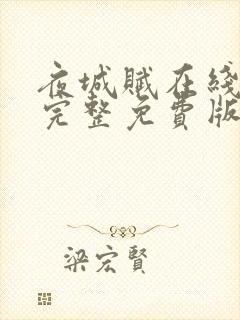 夜城赋在线
完整免費版
梁宏賢